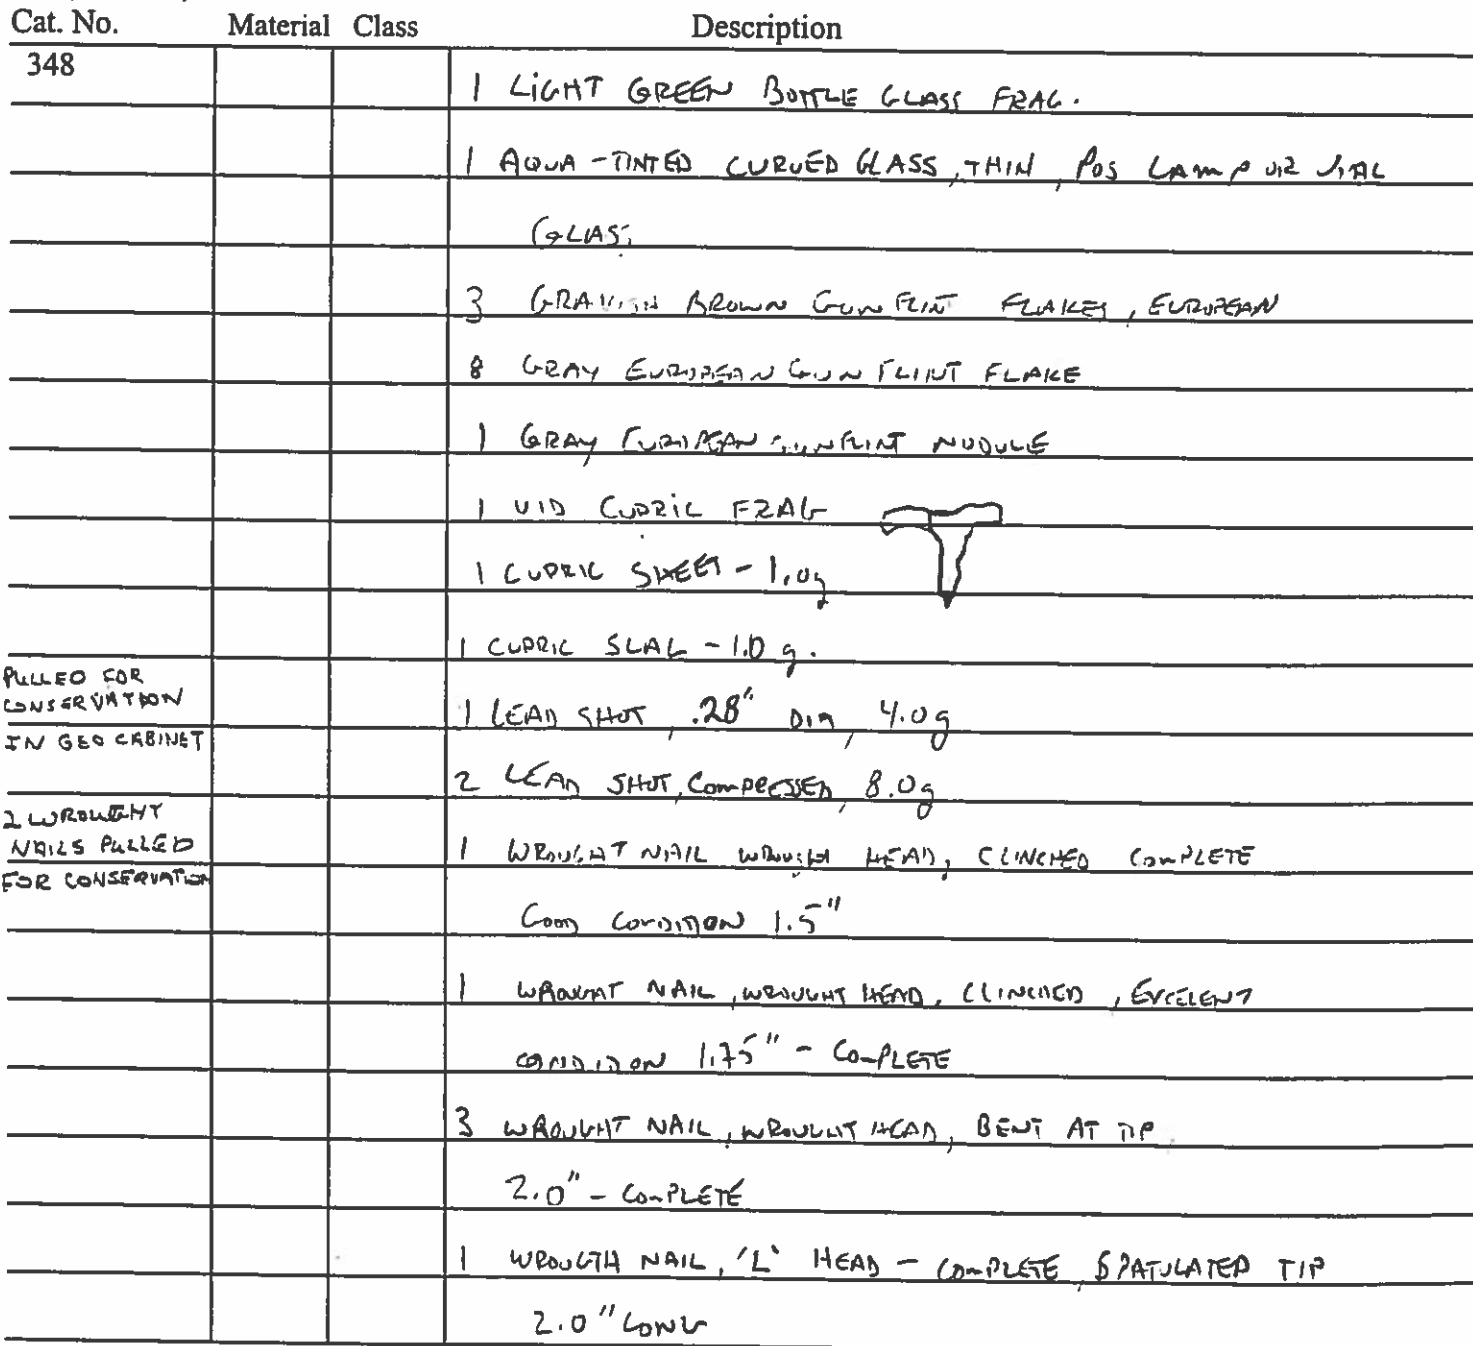 Cat. No. Material Class Description
348
1 LIGHT GREEN BOTTLE GLASS FRAG.
1 AQUA-TINTED CURVED GLASS, THIN, POS LAMP OR VIAL
GLASS
3 GRAYISH BROWN GUNFLINT FLAKES, EUROPEAN
8 GRAY EUROPEAN GUNFLINT FLAKE
1 GRAY EUROPEAN GUNFLINT NODULE
1 UID CUPRIC FRAG
1 CUPRIC SHEET - 1.0g
1 CUPRIC SLAG - 1.0 g.
PULLED FOR
CONSERVATION
IN GEO CABINET
1 LEAD SHOT, .28" DIA, 4.0g
2 LEAD SHOT, COMPRESSED, 8.0g
2 WROUGHT
NAILS PULLED
FOR CONSERVATION
1 WROUGHT NAIL WROUGHT HEAD, CLINCHED COMPLETE
GOOD CONDITION 1.5"
1 WROUGHT NAIL, WROUGHT HEAD, CLINCHED, EXCELENT
CONDITION 1.75" - COMPLETE
3 WROUGHT NAIL, WROUGHT HEAD, BENT AT TIP
2.0" - COMPLETE
1 WROUGTH NAIL, 'L' HEAD - COMPLETE, SPATULATED TIP
2.0" LONG